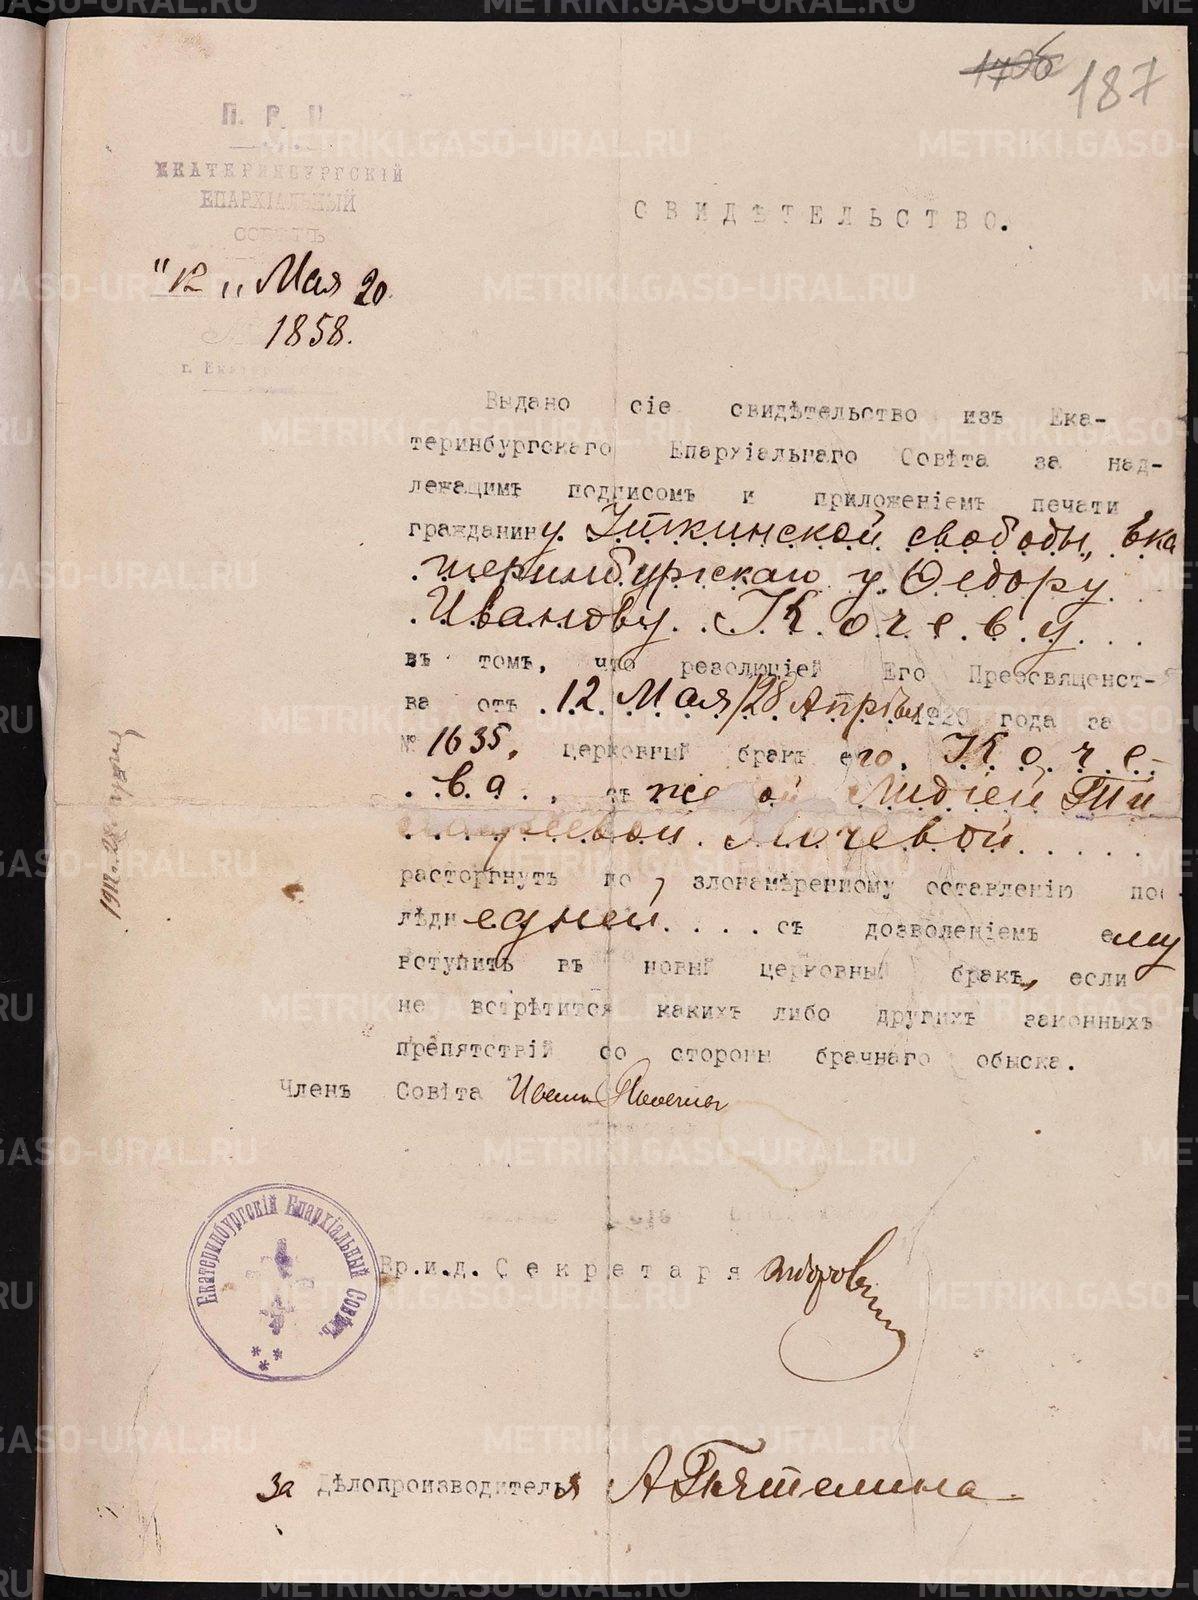 187
П. Р. П
ЕКАТЕРИНБУРГСКІЙ
ЕПАРХІАЛЬНЫЙ
СОВѢТЪ
СВИДѢТЕЛЬСТВО.
"12" Мая 20
1858.
г. Екатеринбургъ
Выдано сіе свидѣтельство изъ Ека-
теринбургскаго Епархіальнаго Совѣта за над-
лежащимъ подписомъ и приложеніемъ печати
гражданину Уткинской свободы, Ека
теринбургскаго у. Ѳедору
Иванову Кочеву
въ томъ, что резолюціей Его Преосвященст-
ва отъ 12 Мая/28 Апрѣля 1920 года за
№ 1635, церковный бракъ его, Коче-
ва, съ женой Лидіей Ти
Кочевой
расторгнутъ по злонамѣренному оставленію пос
лѣдней съ дозволеніемъ ему
вступить въ новый церковный бракъ, если
не встрѣтится какихъ либо другихъ законныхъ
препятствій со стороны брачнаго обыска.
Членъ Совѣта
Екатеринбургскій Епархіальный Совѣтъ.
Вр.и.д. Секретаря
За Дѣлопроизводителя А
METRIKI.GASO-URAL.RU